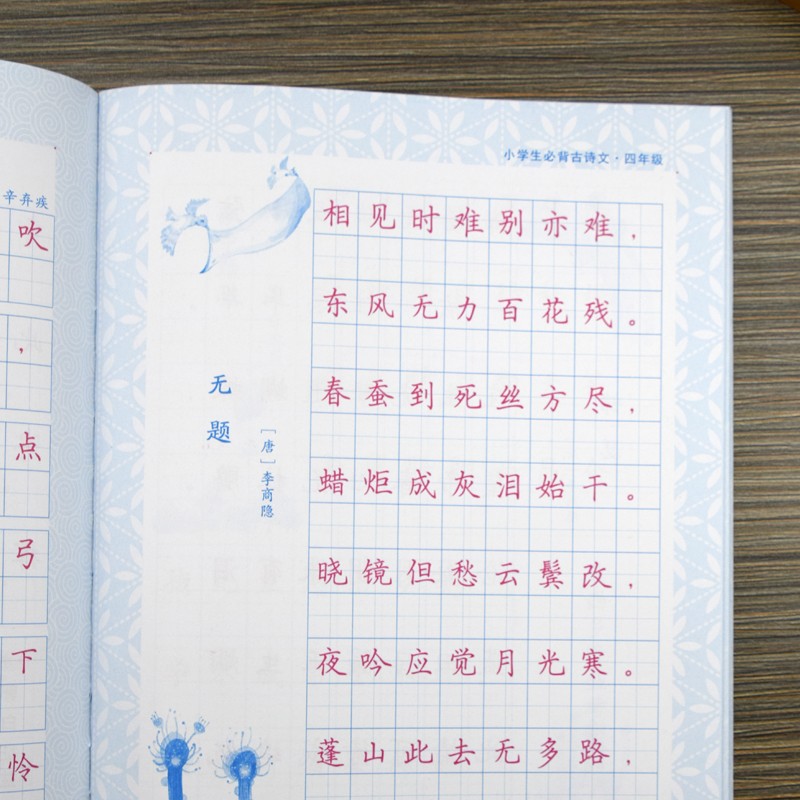 辛弃疾
吹
，
点
弓
下
怜
小学生必背古诗文·四年级
无题
［唐］李商隐
相见时难别亦难，
东风无力百花残。
春蚕到死丝方尽，
蜡炬成灰泪始干。
晓镜但愁云鬓改，
夜吟应觉月光寒。
蓬山此去无多路，